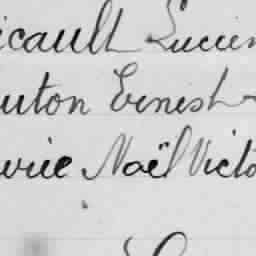 icault Lucien
outon Ernest
urie Noël Victo